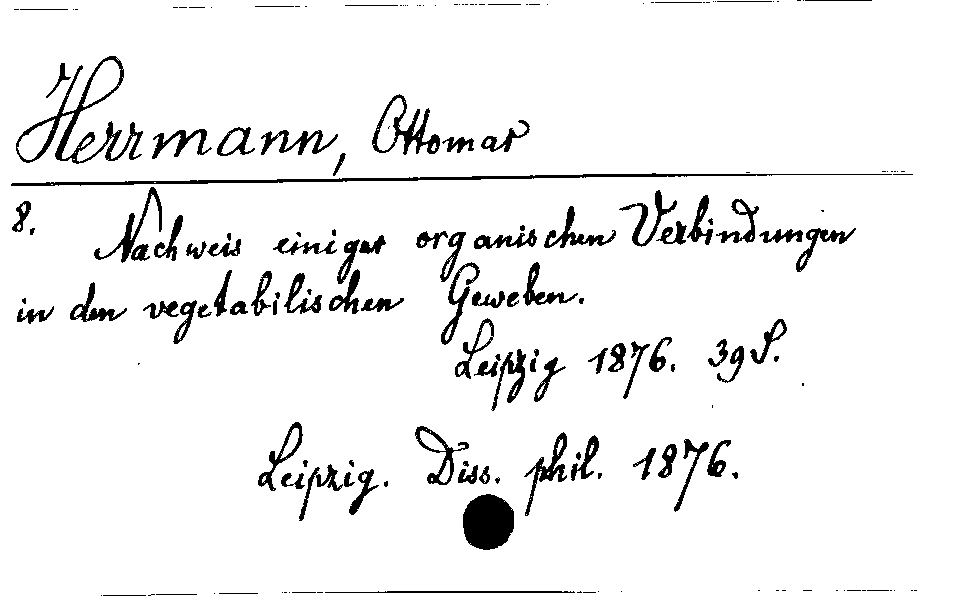 Herrmann, Ottomar
8. Nachweis einiger organischen Verbindungen
in den vegetabilischen Geweben.
Leipzig 1876. 39 S.
Leipzig. Diss. phil. 1876.